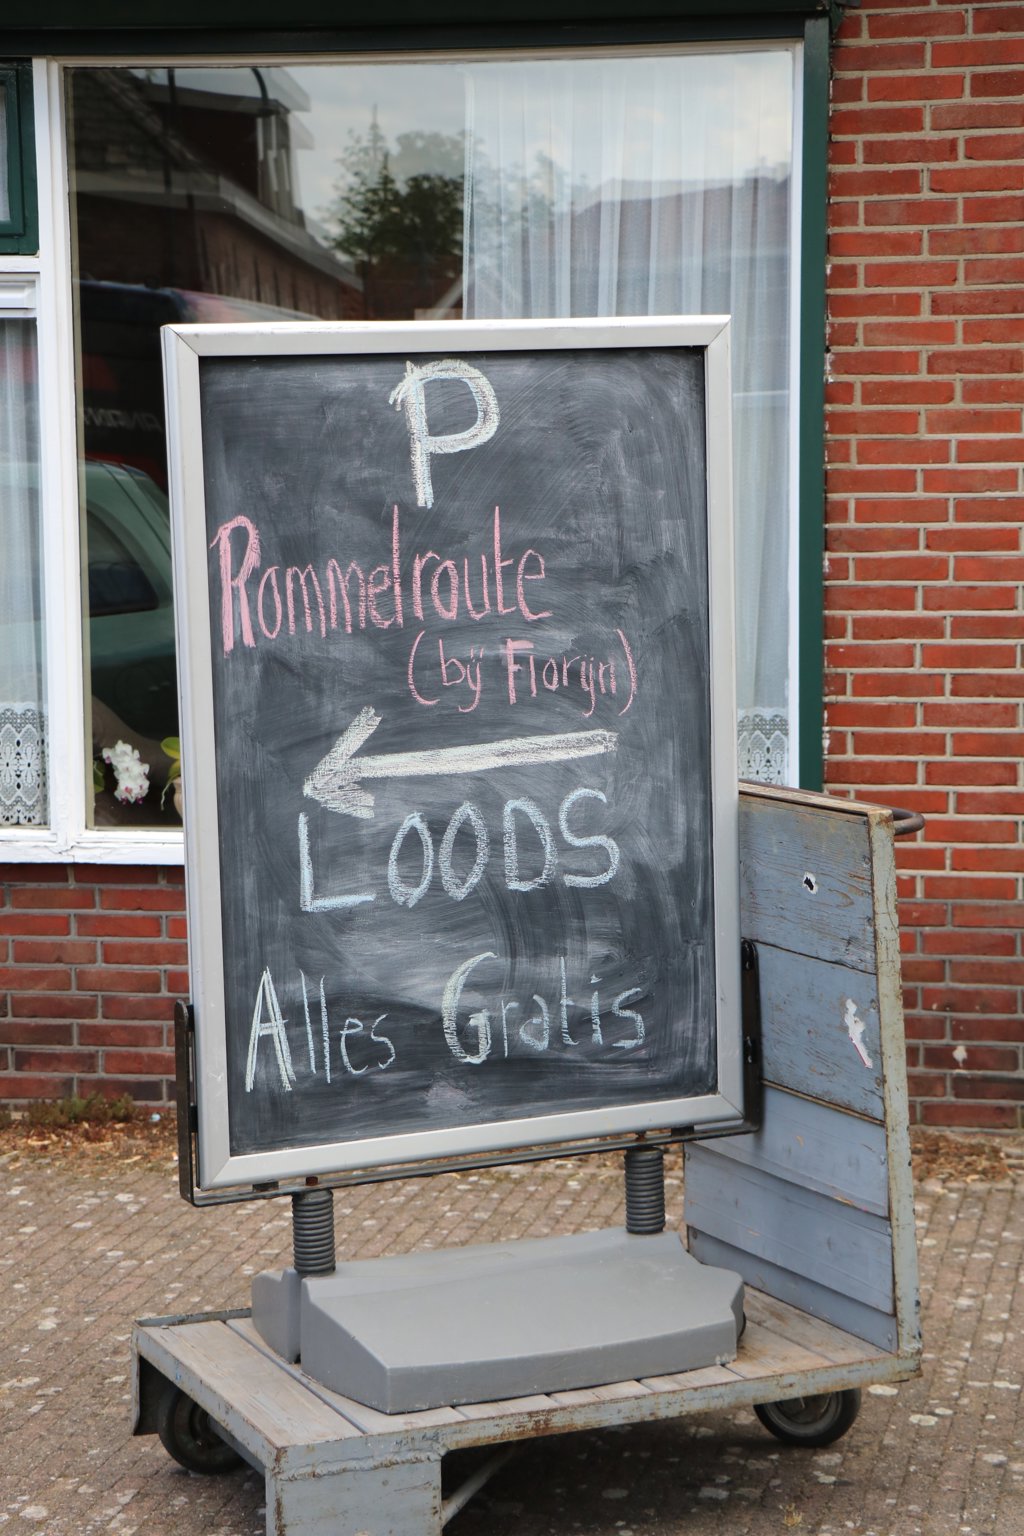 P
Rommelroute
(bij Florijn)
LOODS
Alles Gratis